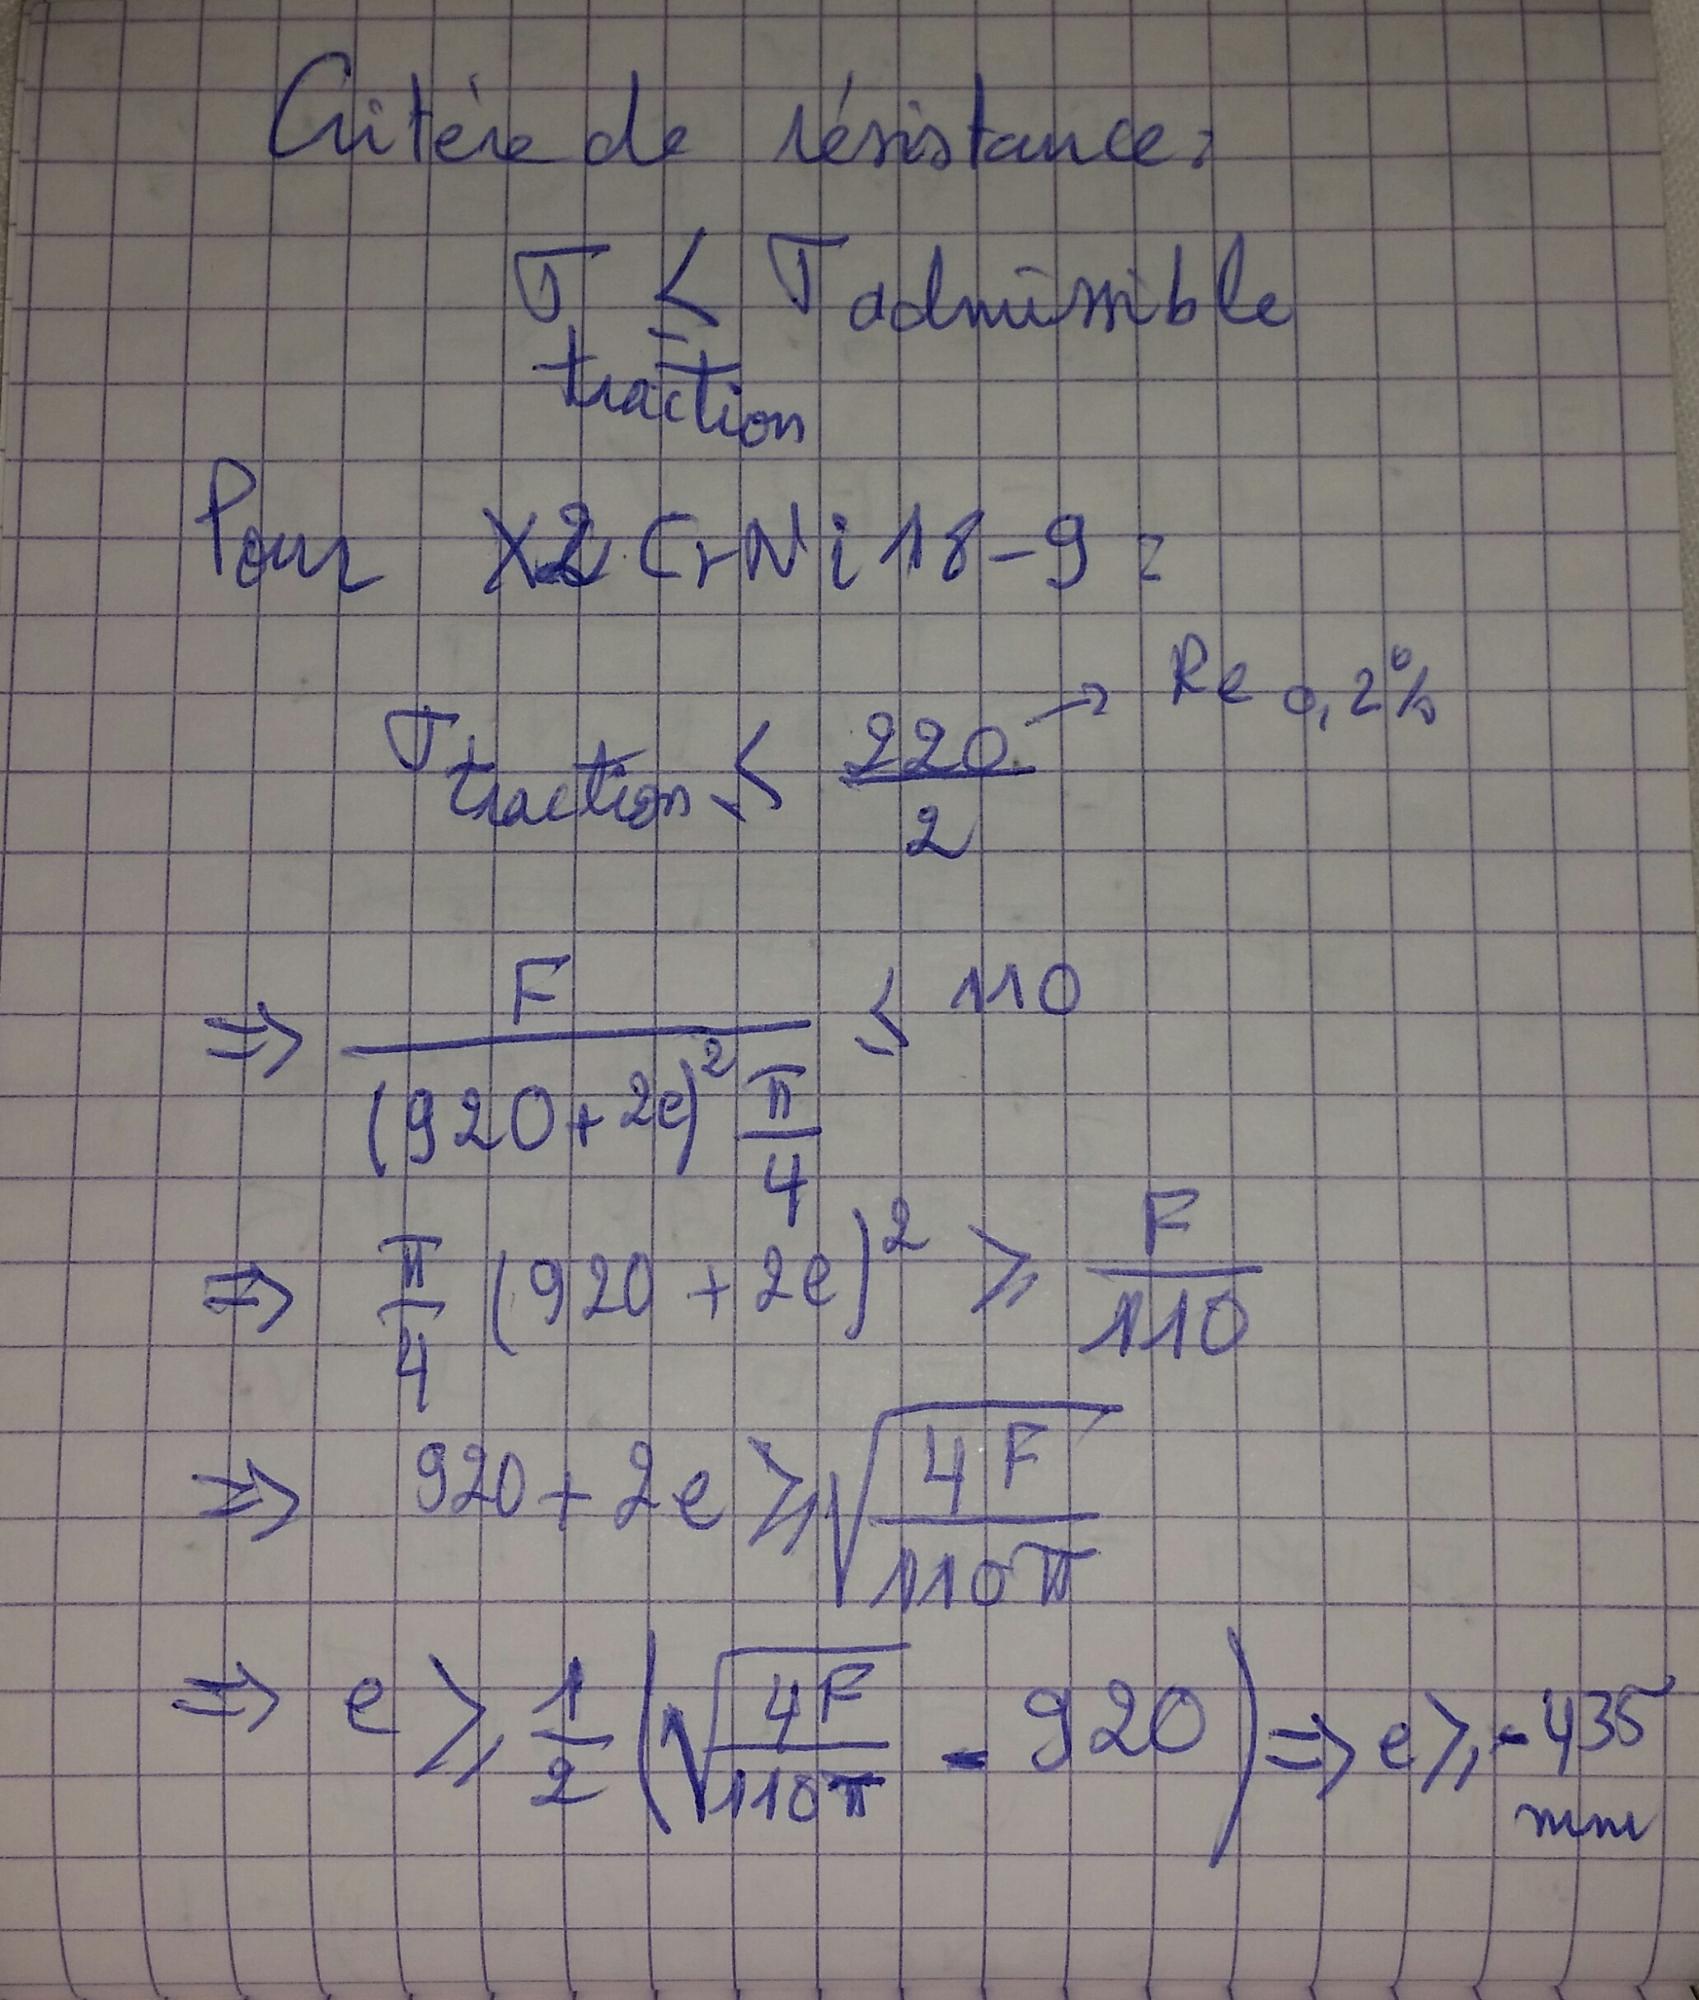 Critère de résistance :
σ traction ≤ σ admissible
Pour X2CrNi18-9 :
σ traction ≤ 220/2 → Re 0,2%
⇒ F / ((920+2e)² π/4) ≤ 110
⇒ π/4 (920 + 2e)² ≥ F/110
⇒ 920 + 2e ≥ √(4F/110π)
⇒ e ≥ 1/2 (√(4F/110π) - 920) ⇒ e ≥ -435 mm